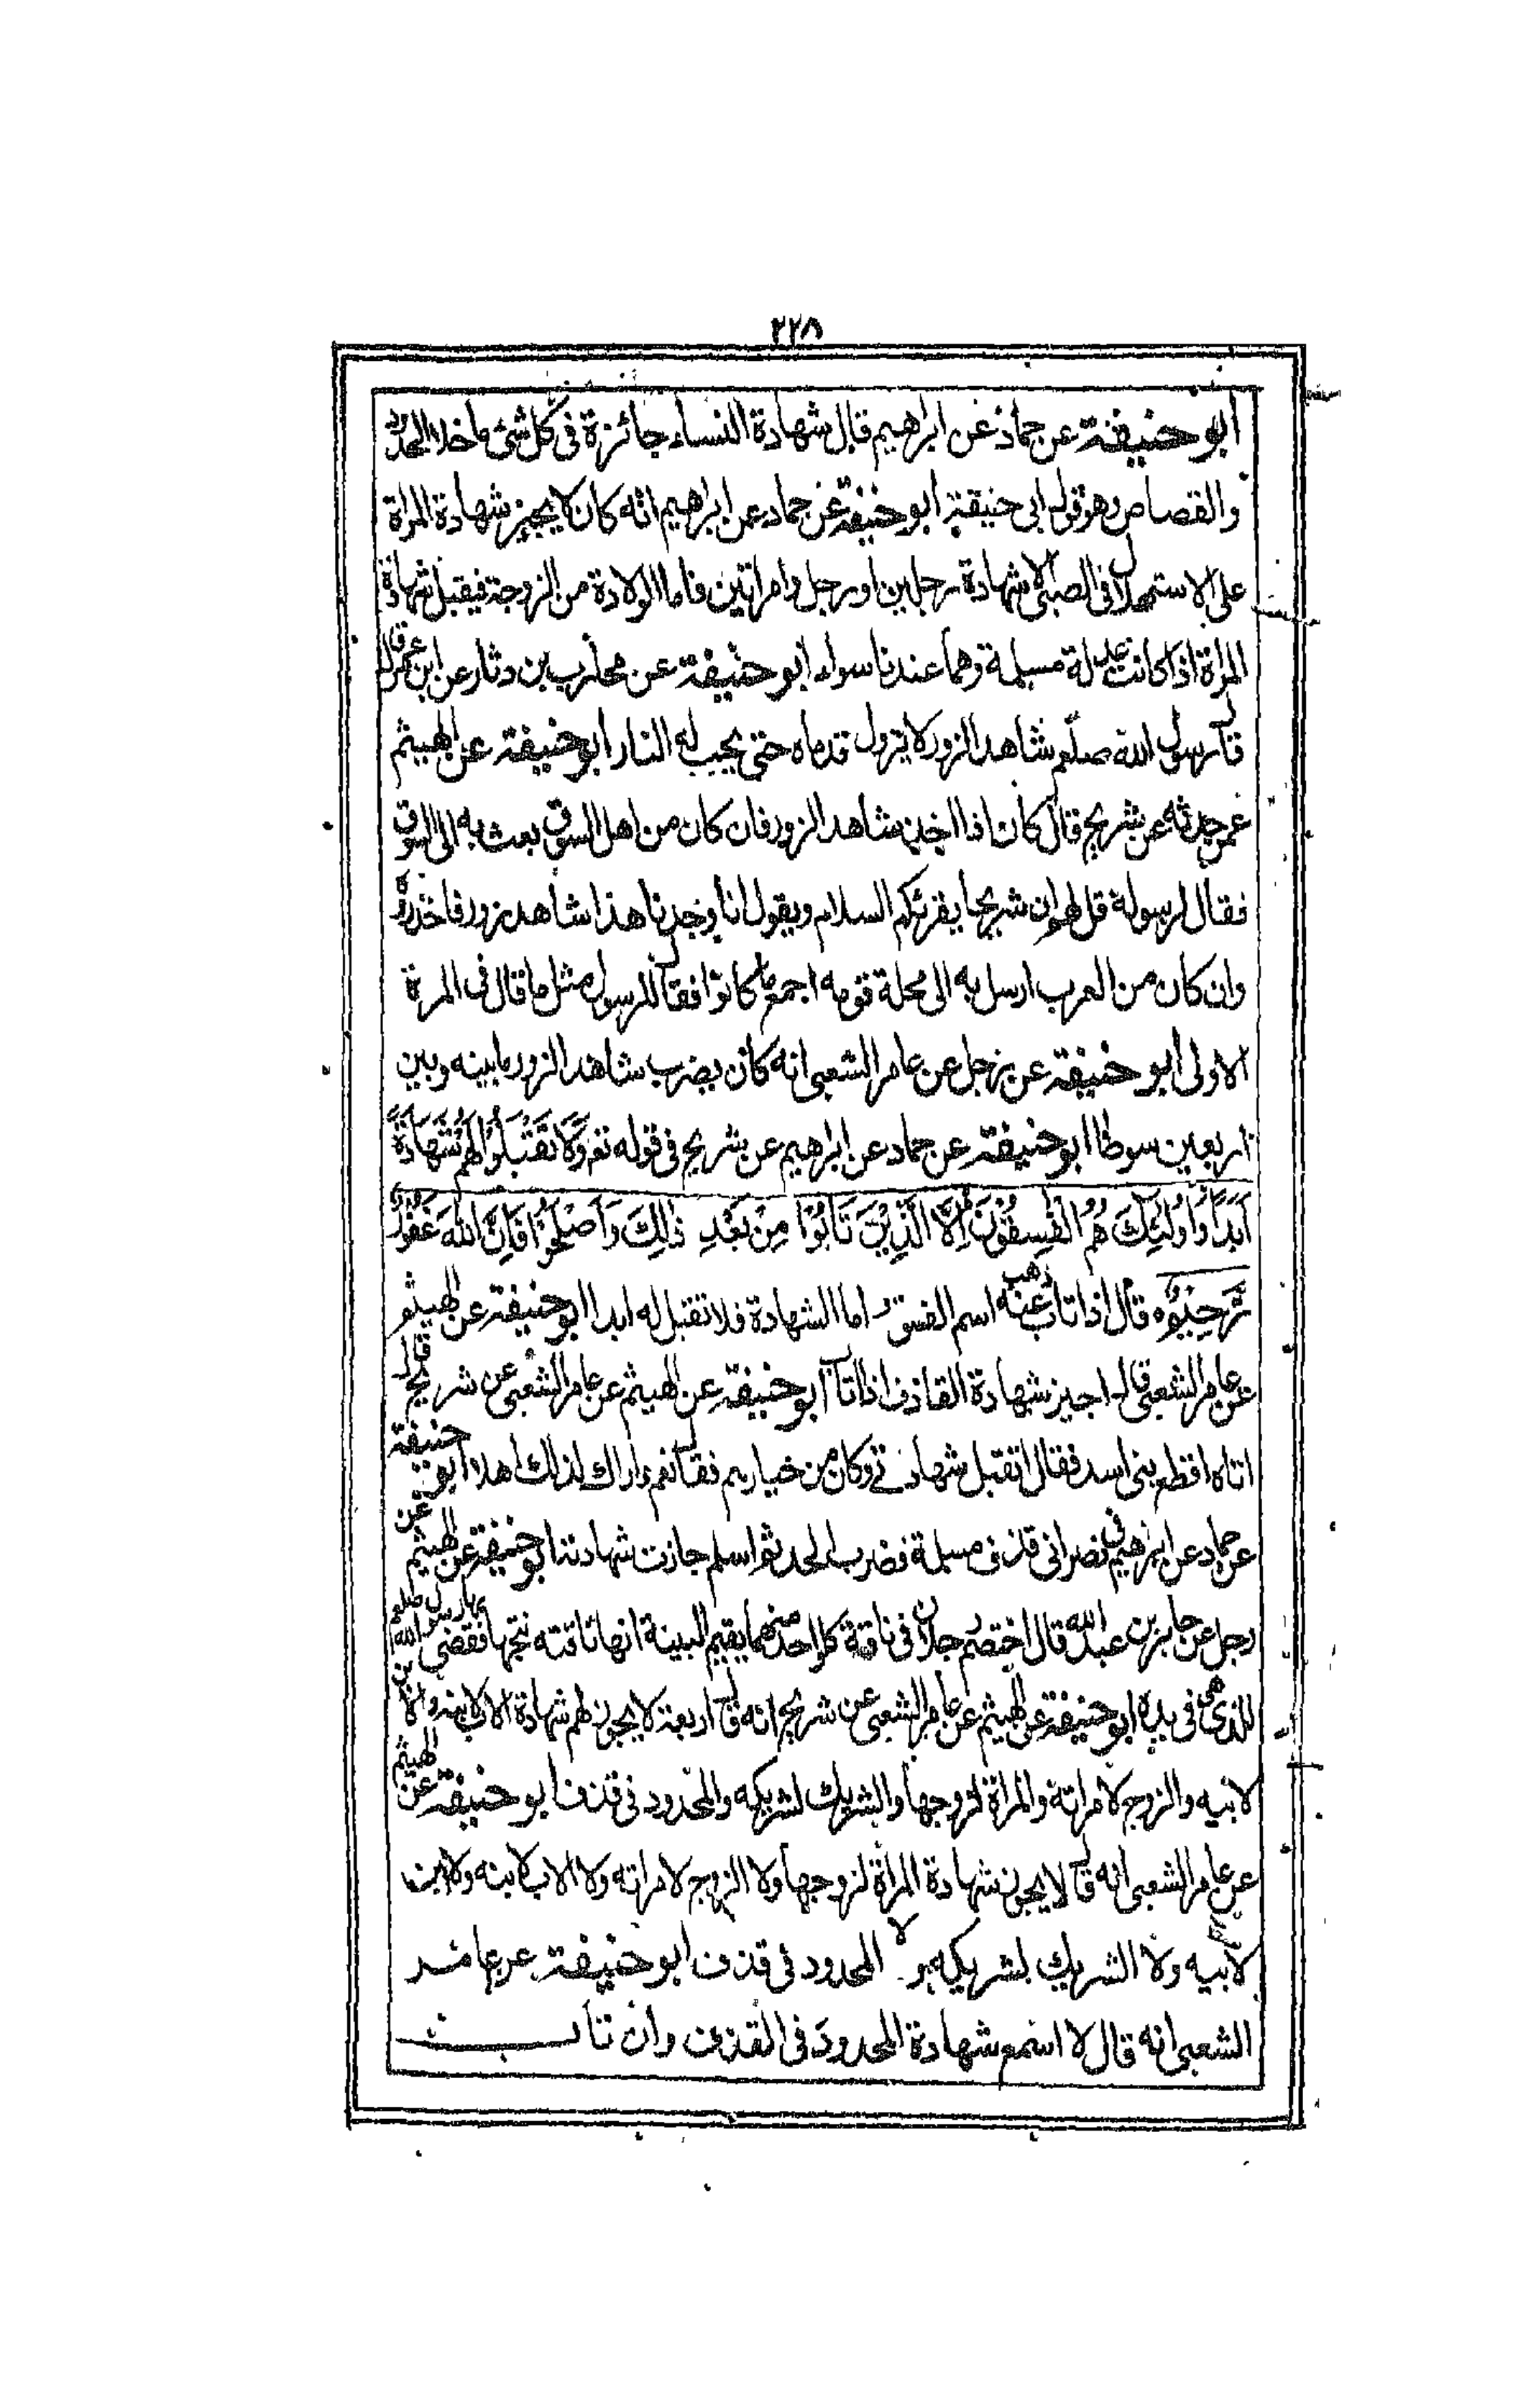 ٢٢٨
ابو حنيفة عن حماد عن ابراهيم قال شهادة النساء جائزة فى كل شئ ما خلا الحدود
والقصاص وهو قول ابى حنيفة ابو حنيفة عن حماد عن ابراهيم انه كان لا يجيز شهادة المراة
على الاستهلال فى الصبى الا شهادة رجلين او رجل وامراتين فاما الولادة من الزوجة فيقبل شهادة
المراة اذا كانت عدلة مسلمة وهما عندنا سواء ابو حنيفة عن محارب بن دثار عن ابن عمر قال
قال رسول الله صلعم شاهد الزور لا يزول قدماه حتى يجب له النار ابو حنيفة عن الهيثم
عمن حدثه عن شريح قال كان اذا اخذ شاهد الزور فان كان من اهل السوق بعث به الى السوق
فقال لرسوله قل لهم ان شريحا يقرئكم السلام ويقول انا وجدنا هذا شاهد زور فاحذروه
وان كان من العرب ارسل به الى محلة قومه اجمع ما كانوا فقال للرسول مثل ما قال فى المرة
الاولى ابو حنيفة عن رجل عن عامر الشعبى انه كان يضرب شاهد الزور ما بينه وبين
اربعين سوطا ابو حنيفة عن حماد عن ابراهيم عن شريح فى قوله تعـ وَلَا تَقْبَلُوْا لَهُمْ شَهَادَةً
اَبَدًا وَاُولٰئِكَ هُمُ الْفٰسِقُوْنَ اِلَّا الَّذِيْنَ تَابُوْا مِنْ بَعْدِ ذٰلِكَ وَاَصْلَحُوْا فَاِنَّ اللّٰهَ غَفُوْرٌ
رَّحِيْمٌ ه قال اذا تاب ذهب عنه اسم الفسق اما الشهادة فلا تقبل له ابدا ابو حنيفة عن الهيثم
عن عامر الشعبى قال اجيز شهادة القاذف اذا تاب ابو حنيفة عن الهيثم عن عامر الشعبى عن شريح قال
اتاه اقطع بنى اسد فقال اتقبل شهادتى وكان من خيارهم فقال نعم واراك لذلك اهلا ابو حنيفة
عن حماد عن ابراهيم فى نصرانى قذف مسلمة فضرب الحد ثم اسلم جازت شهادته ابو حنيفة عن الهيثم عن
رجل عن جابر بن عبد الله قال اختصم رجلان فى ناقة كل واحد منهما يقيم البينة انها ناقته نتجها فقضى بها رسول الله صلعم
للذى هى فى يده ابو حنيفة عن الهيثم عن عامر الشعبى عن شريح انه قال اربعة لا يجوز لهم شهادة الاب لابنه والابن
لابيه والزوج لامراته والمراة لزوجها والشريك لشريكه والمحدود فى قذف ابو حنيفة عن الهيثم
عن عامر الشعبى انه قال لا يجوز شهادة المراة لزوجها ولا الزوج لامراته ولا الاب لابنه ولا ابن
لابيه ولا الشريك لشريكه ولا المحدود فى قذف ابو حنيفة عن عامر
الشعبى انه قال لا اسمع شهادة المحدود فى القذف وان تاب